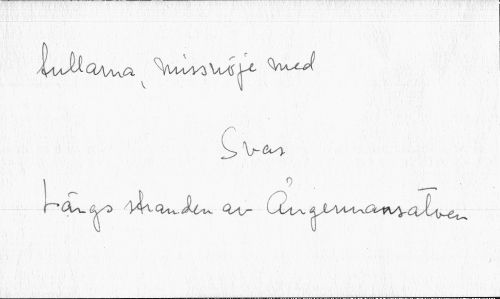 tullarna, missnöje med
Svar
Längs stranden av Ångermansälven